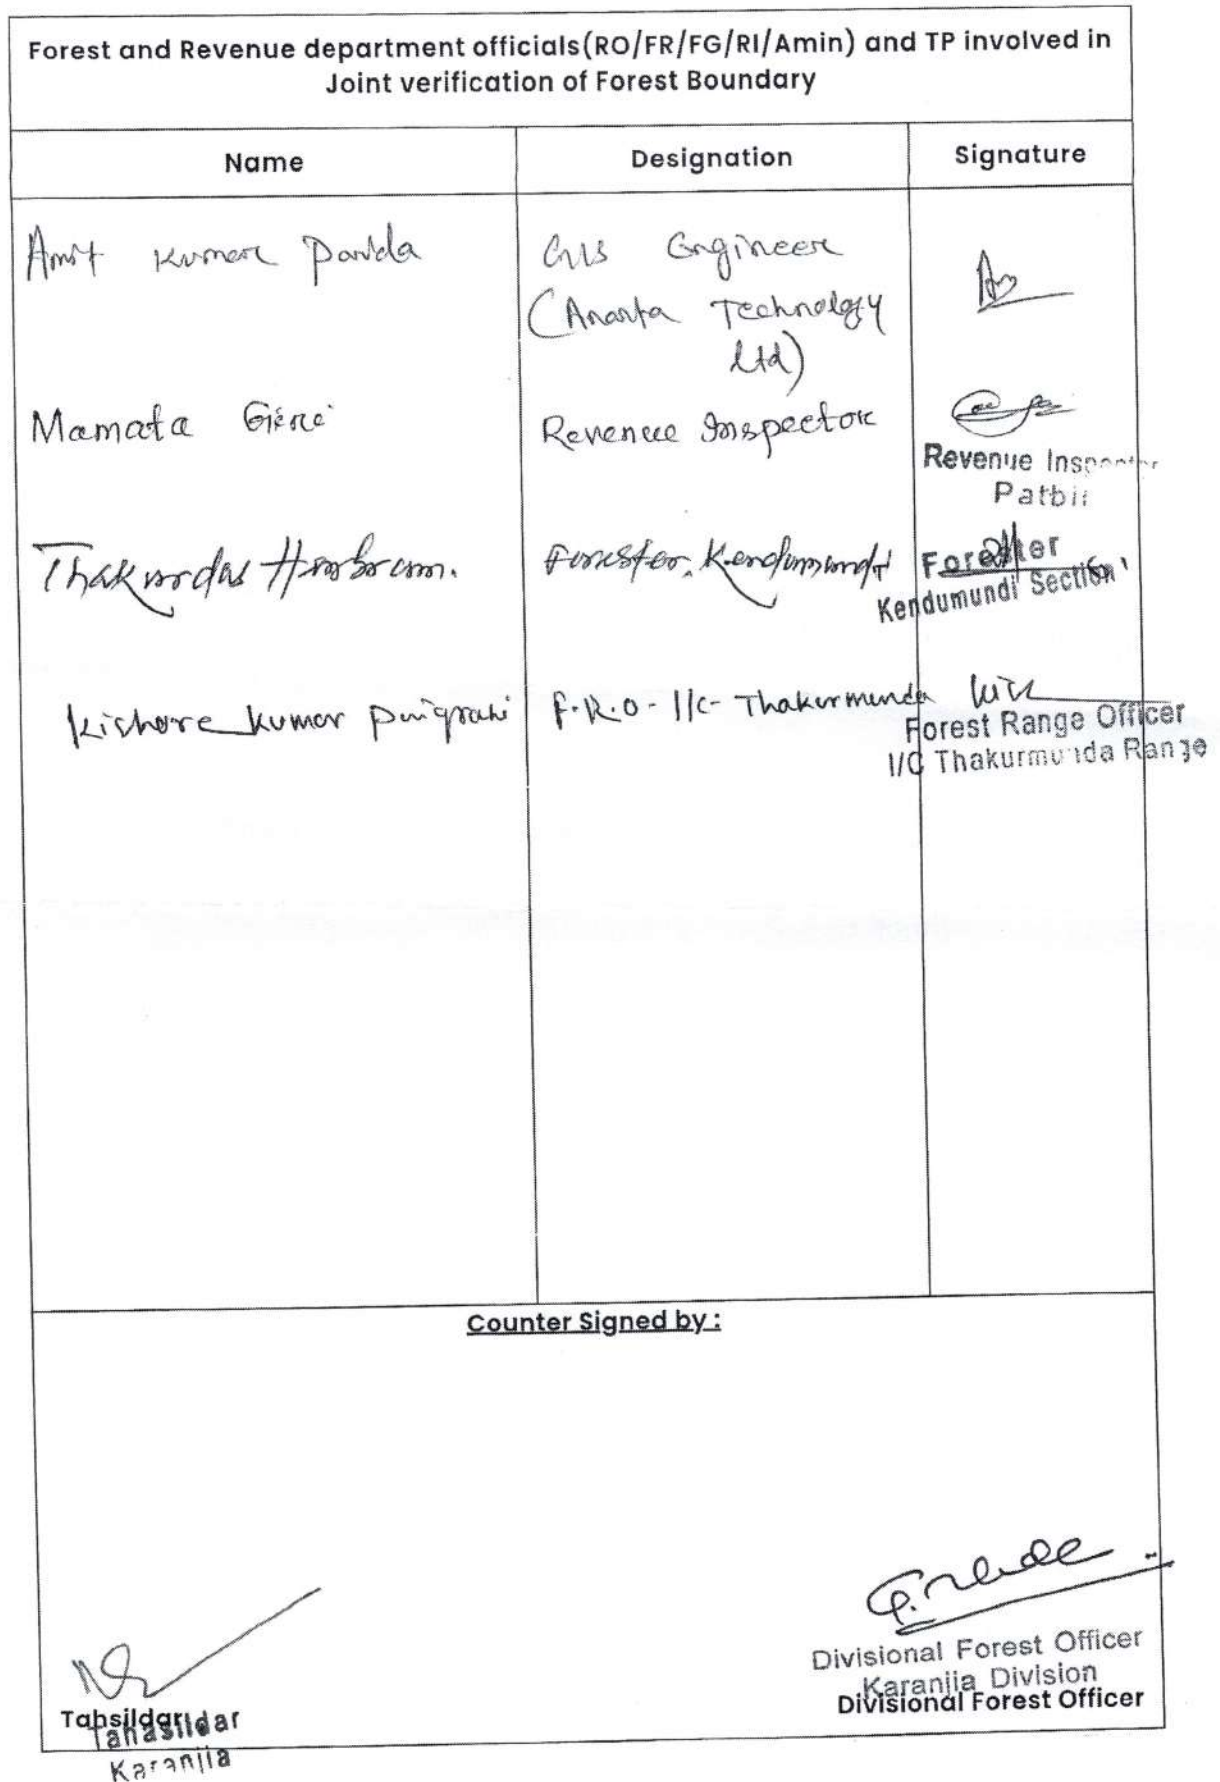 Forest and Revenue department officials(RO/FR/FG/RI/Amin) and TP involved in
Joint verification of Forest Boundary
Name Designation Signature
Amit Kumar Parida GIS Engineer
(Ananta Technology
Ltd)
Mamata Giri Revenue Inspector
Revenue Inspector
Patbil
Thakurdas Hembram. Forester, Kendumundi
Forester
Kendumundi Section
Kishore Kumar Panigrahi F.R.O - I/c - Thakurmunda
Forest Range Officer
I/C Thakurmunda Range
Counter Signed by :
Divisional Forest Officer
Karanjia Division
Tahsildar Divisional Forest Officer
Tahasildar
Karanjia